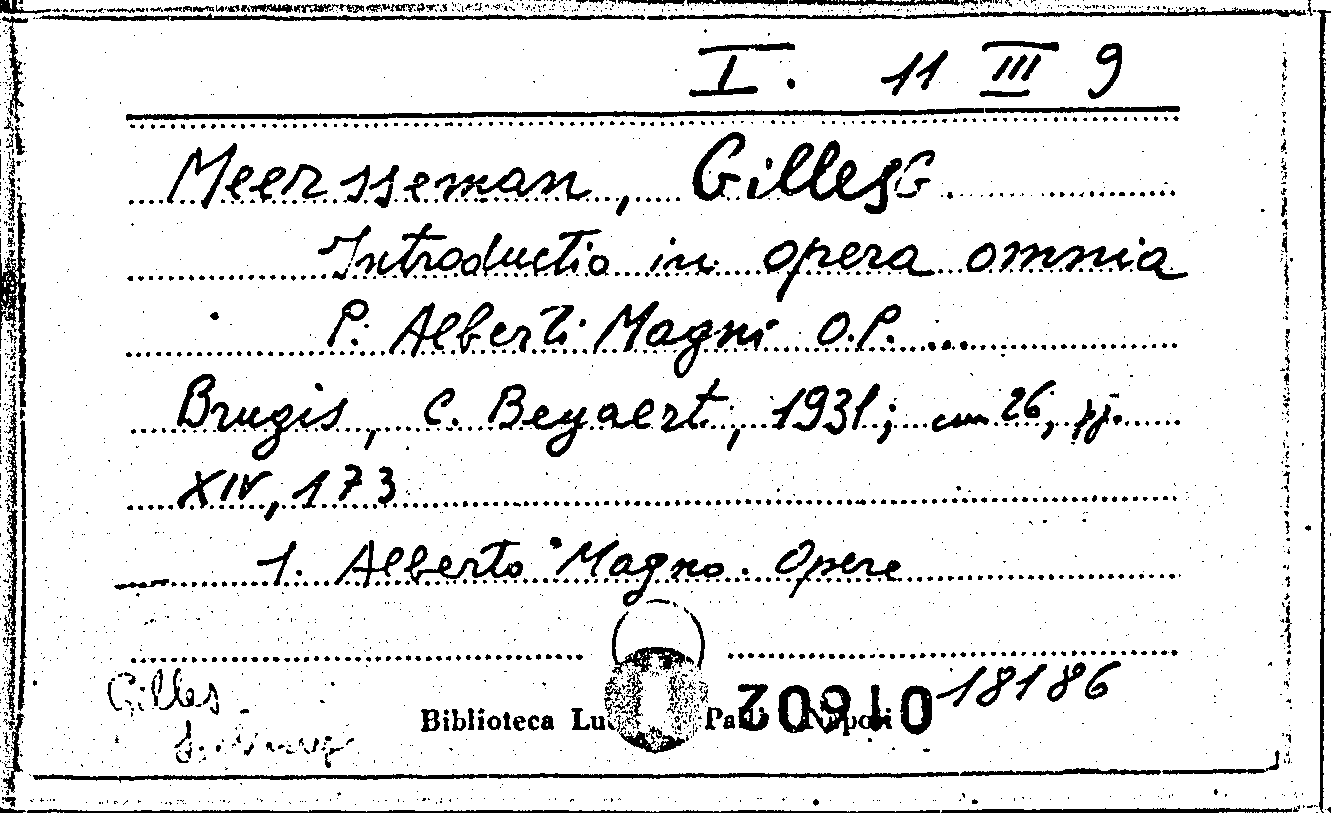 I. 11 III 9
Meersseman, Gilles G.
Introductio in opera omnia
P. Alberti Magni O.P. ...
Brugis, C. Beyaert, 1931; cm 26, pp.
XIV, 173
1. Alberto Magno. Opere
18186
Gilles
Biblioteca